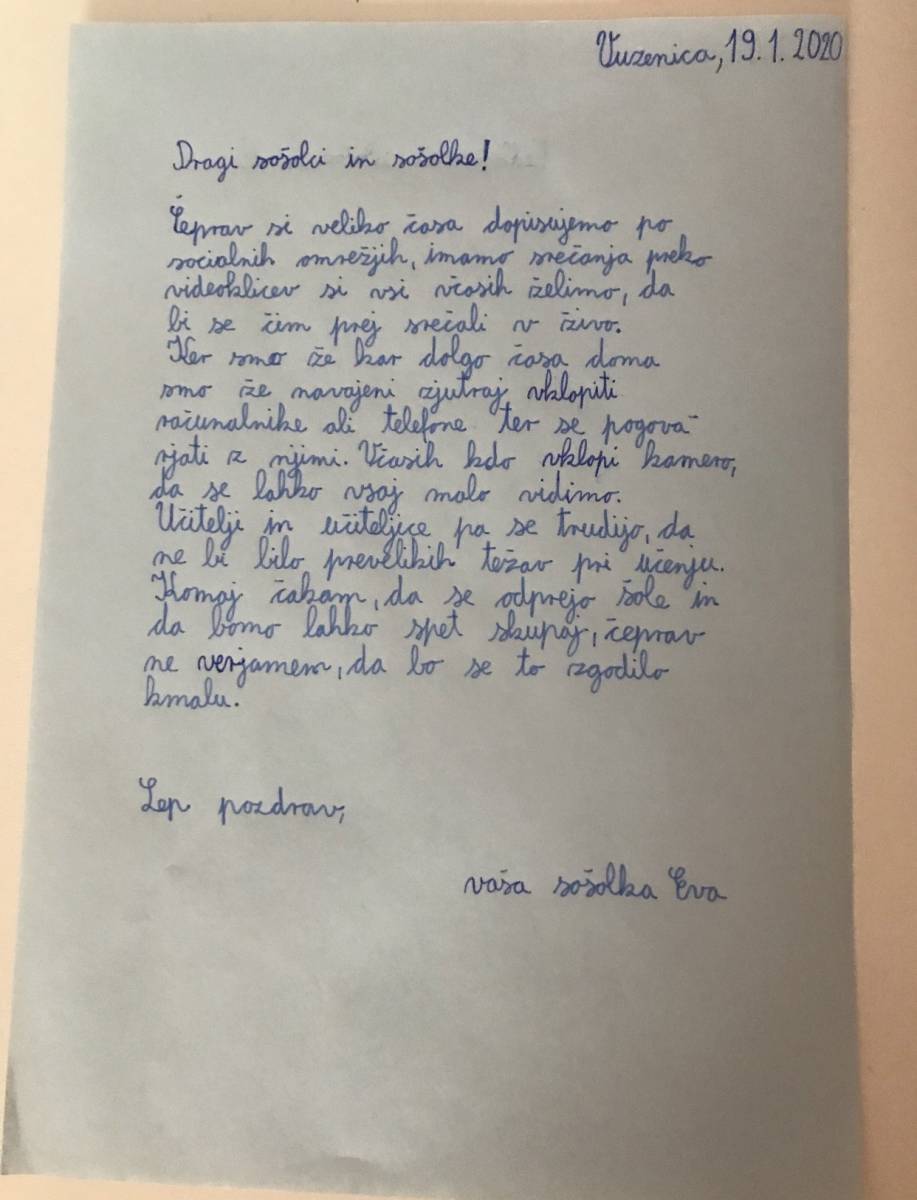 Vuzenica, 19. 1. 2020
Dragi sošolci in sošolke!
Čeprav si veliko časa dopisujemo po
socialnih omrežjih, imamo srečanja preko
videoklicev si vsi včasih želimo, da
bi se čim prej srečali v živo.
Ker smo že kar dolgo časa doma
smo že navajeni zjutraj vklopiti
računalnike ali telefone ter se pogova-
rjati z njimi. Včasih kdo vklopi kamero,
da se lahko vsaj malo vidimo.
Učitelji in učiteljice pa se trudijo, da
ne bi bilo prevelikih težav pri učenju.
Komaj čakam, da se odprejo šole in
da bomo lahko spet skupaj, čeprav
ne verjamem, da bo se to zgodilo
kmalu.
Lep pozdrav,
vaša sošolka Eva